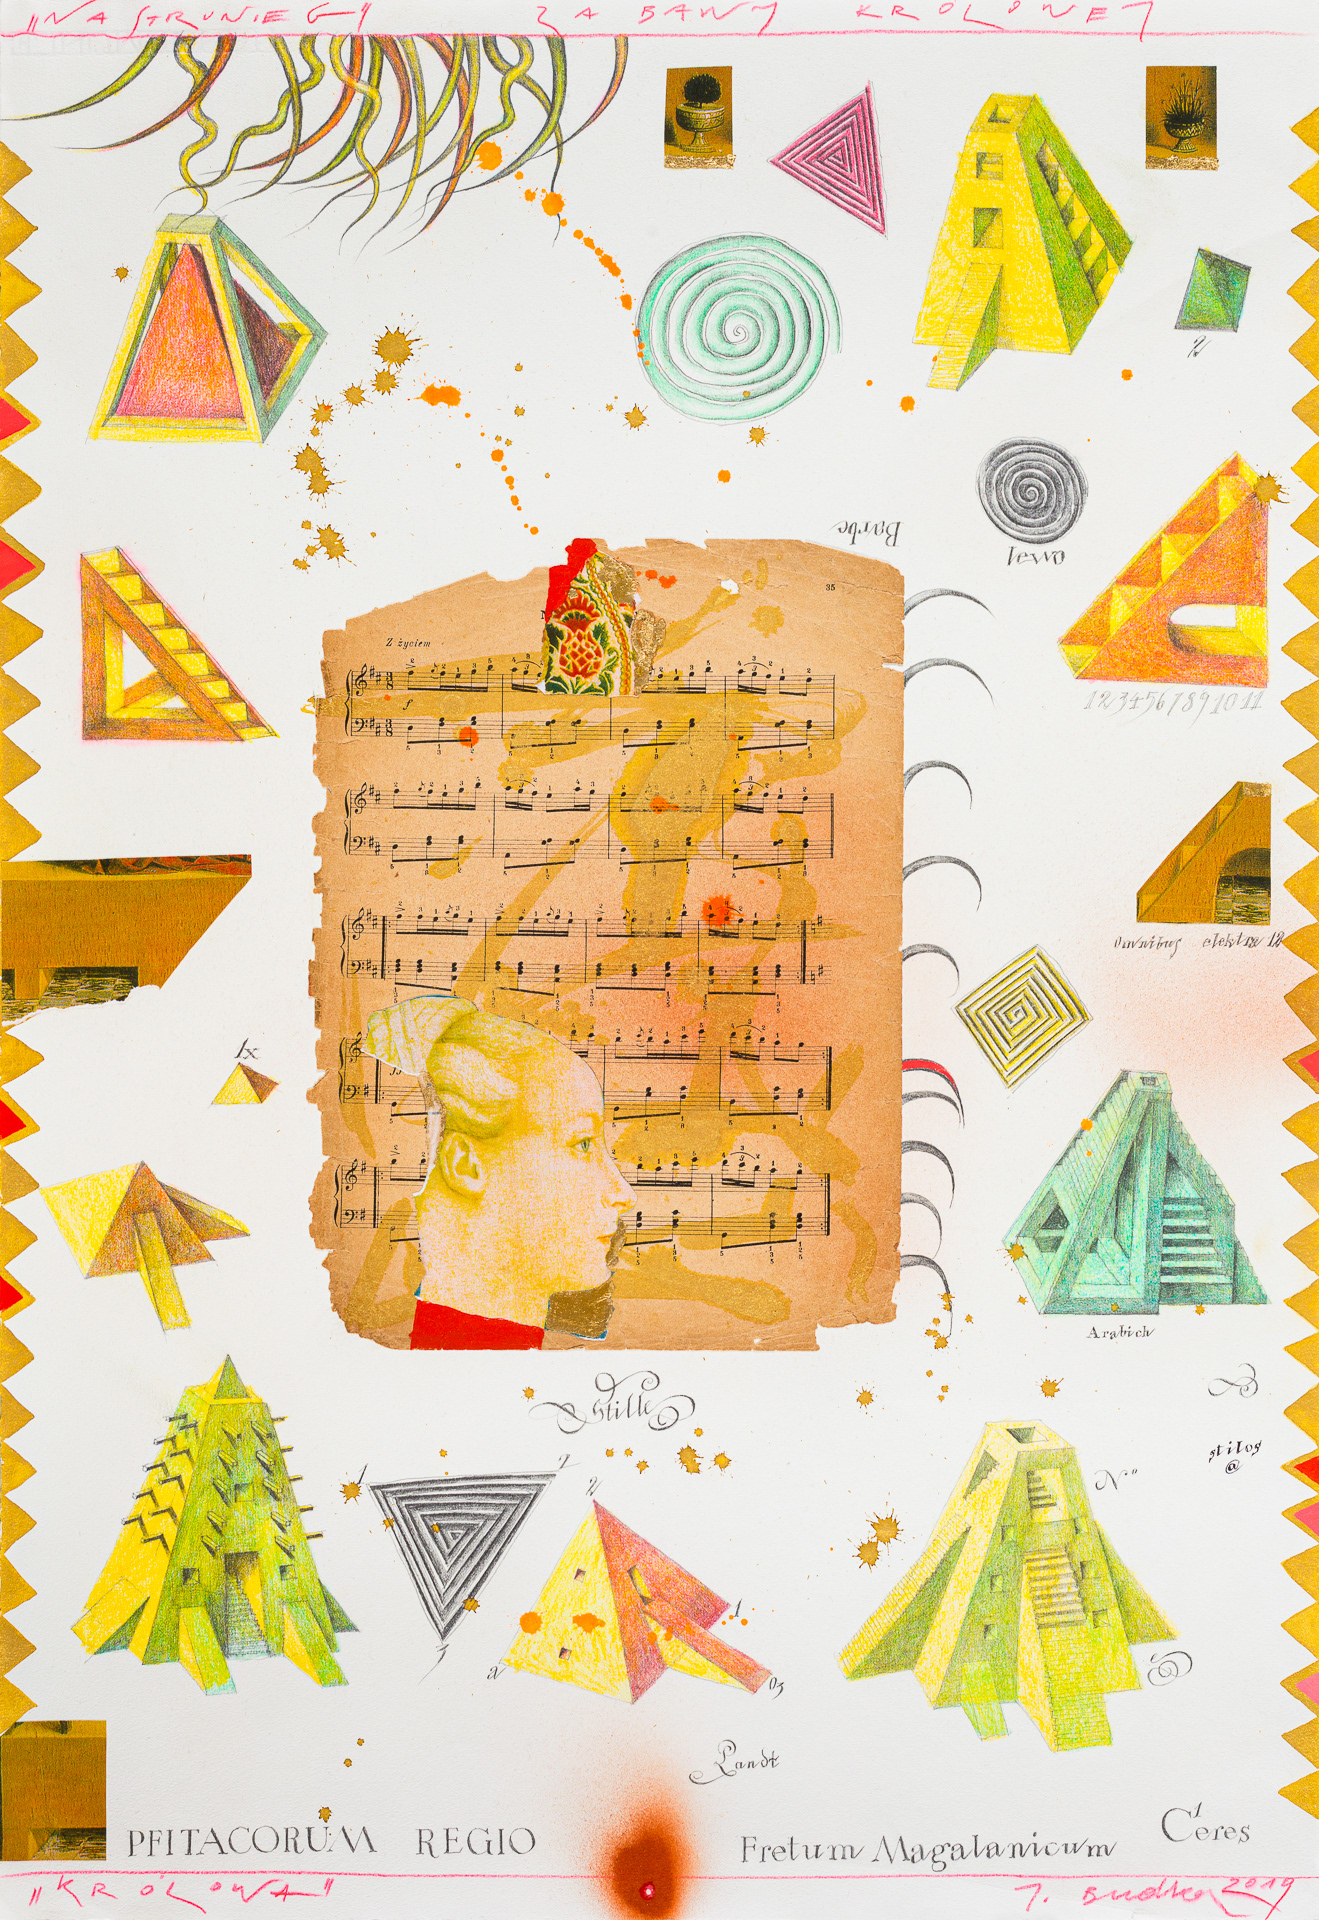 „NASTRÓNIEG” ZABAWY KRÓLOWEJ
2
Barbe
lewo
35
Z życiem
f
1 2 3 4 5 6 7 8 9 10 11
Omnibus elektra 12
1x
ff
Arabich
Stille
stilos
@
N"
1 2
3
2
1
a
03
Landt
PFITACORUM REGIO
Fretum Magalanicum
1
Ceres
„KRÓLOWA”
J. Budka 2019